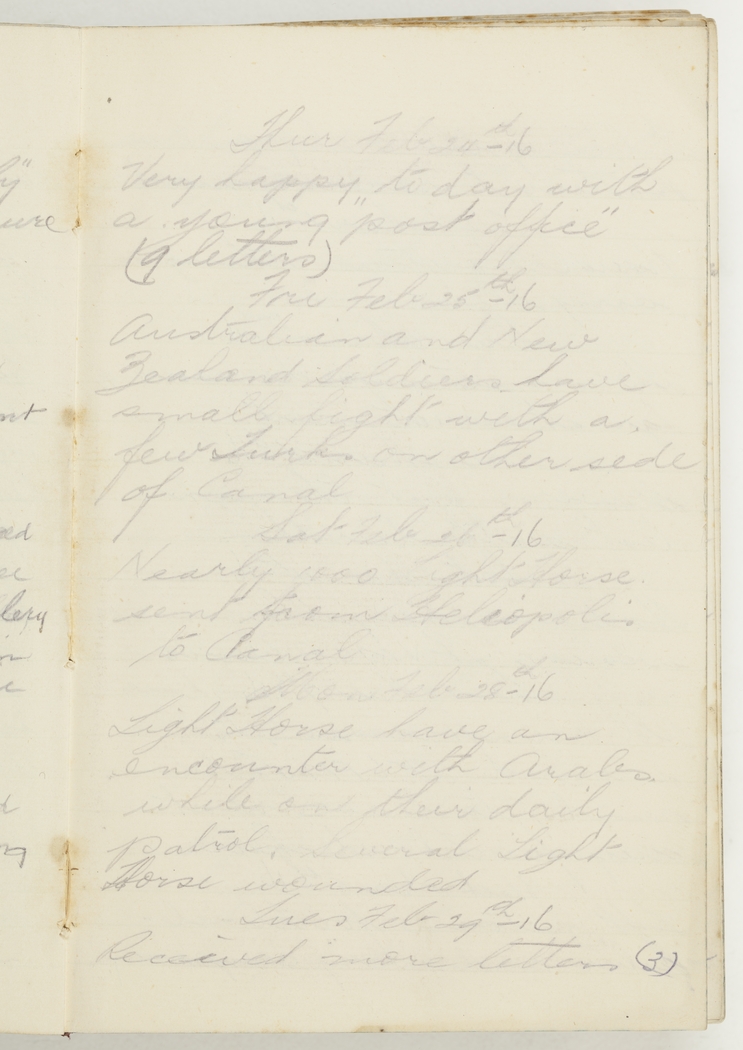 Thur Feb 24th-16
Very happy to day with
a young "post office"
(9 letters)
Fri Feb 25th-16
Australian and New
Zealand Soldiers have
small fight with a
few Turks on other side
of Canal
Sat Feb 26th-16
Nearly 1000 Light Horse
sent from Heliopolis
to Canal
Mon Feb 28th-16
Light Horse have an
encounter with Arabs
while on their daily
patrol. Several Light
Horse wounded
Tues Feb 29th-16
Received more letters (3)